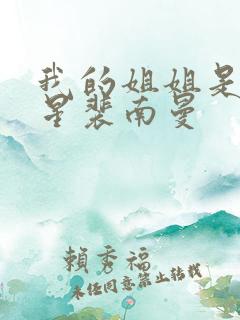 我的姐姐是
星裴南曼
賴秀福
未經同意禁止轉載